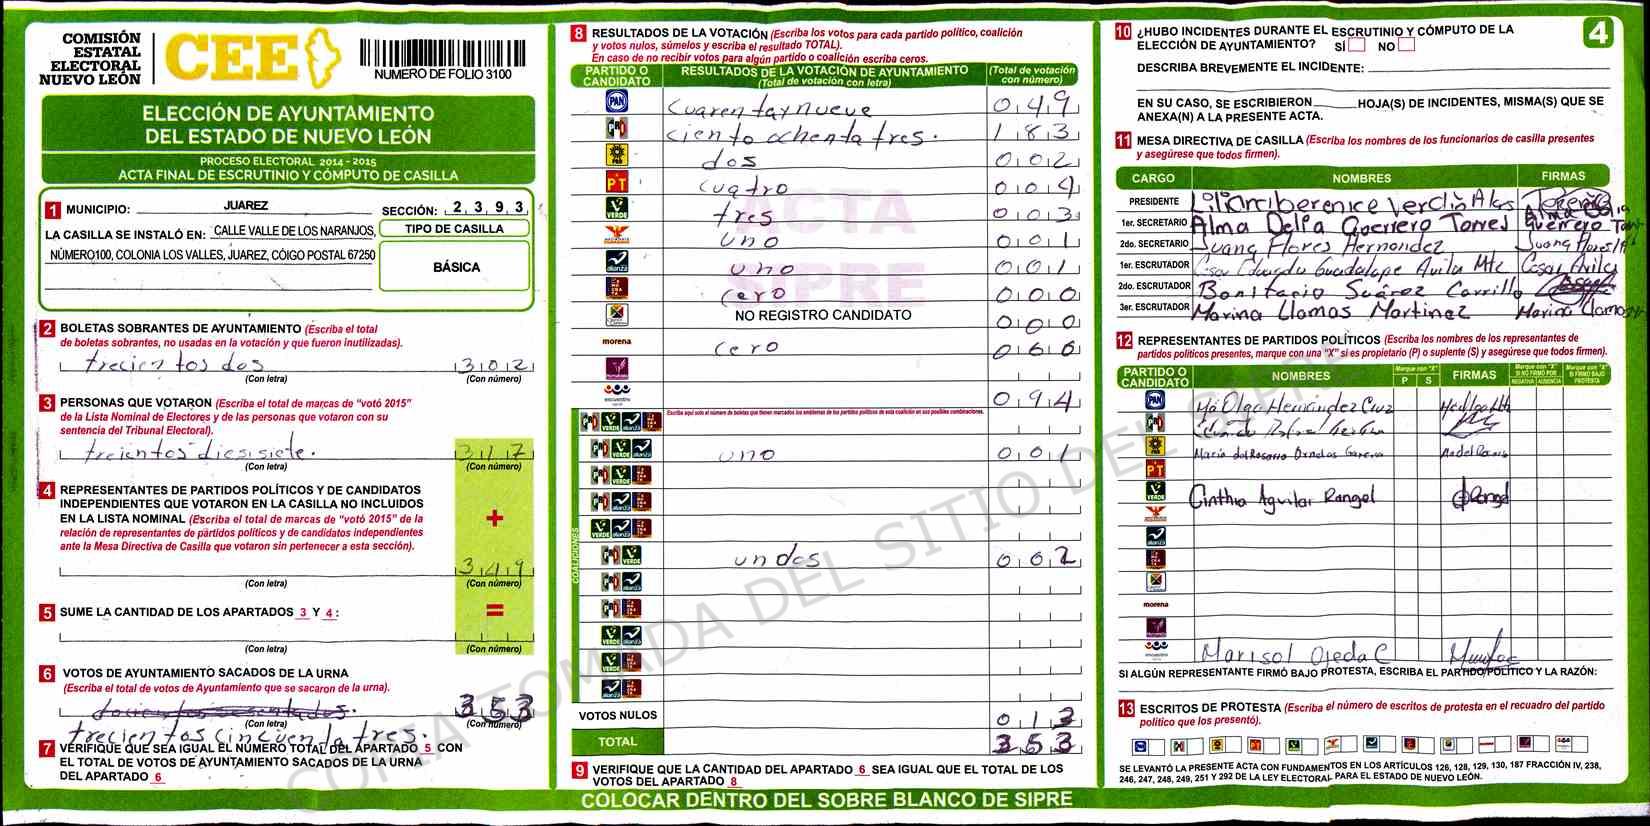 COMISIÓN
ESTATAL
ELECTORAL
NUEVO LEÓN
CEE
NUMERO DE FOLIO 3100
ELECCIÓN DE AYUNTAMIENTO
DEL ESTADO DE NUEVO LEÓN
PROCESO ELECTORAL 2014 - 2015
ACTA FINAL DE ESCRUTINIO Y CÓMPUTO DE CASILLA
1 MUNICIPIO: JUAREZ SECCIÓN: 2,3,9,3
LA CASILLA SE INSTALÓ EN: CALLE VALLE DE LOS NARANJOS,
NÚMERO100, COLONIA LOS VALLES, JUAREZ, CÓIGO POSTAL 67250
TIPO DE CASILLA
BÁSICA
2 BOLETAS SOBRANTES DE AYUNTAMIENTO (Escriba el total
de boletas sobrantes, no usadas en la votación y que fueron inutilizadas).
trecientos dos 302
(Con letra) (Con número)
3 PERSONAS QUE VOTARON (Escriba el total de marcas de "votó 2015"
de la Lista Nominal de Electores y de las personas que votaron con su
sentencia del Tribunal Electoral).
trecientos diesisiete. 317
(Con letra) (Con número)
4 REPRESENTANTES DE PARTIDOS POLÍTICOS Y DE CANDIDATOS
INDEPENDIENTES QUE VOTARON EN LA CASILLA NO INCLUIDOS
EN LA LISTA NOMINAL (Escriba el total de marcas de "votó 2015" de la
relación de representantes de pártidos políticos y de candidatos independientes
ante la Mesa Directiva de Casilla que votaron sin pertenecer a esta sección).
+
349
(Con letra) (Con número)
5 SUME LA CANTIDAD DE LOS APARTADOS 3 Y 4:
=
(Con letra) (Con número)
6 VOTOS DE AYUNTAMIENTO SACADOS DE LA URNA
(Escriba el total de votos de Ayuntamiento que se sacaron de la urna).
353
(Con letra) (Con número)
trecientos cincuenta tres.
7 VERIFIQUE QUE SEA IGUAL EL NÚMERO TOTAL DEL APARTADO 5 CON
EL TOTAL DE VOTOS DE AYUNTAMIENTO SACADOS DE LA URNA
DEL APARTADO 6
8 RESULTADOS DE LA VOTACIÓN (Escriba los votos para cada partido político, coalición
y votos nulos, súmelos y escriba el resultado TOTAL).
En caso de no recibir votos para algún partido o coalición escriba ceros.
PARTIDO O CANDIDATO RESULTADOS DE LA VOTACIÓN DE AYUNTAMIENTO (Total de votación con letra) (Total de votación con número)
PAN cuarentaynueve 049
PRI ciento ochenta tres. 183
PRD dos 002
PT cuatro 004
VERDE tres 003
uno 001
alianza uno 001
cero 000
NO REGISTRO CANDIDATO 000
morena cero 000
encuentro 094
Escriba aquí solo el número de boletas que tienen marcados los emblemas de los partidos políticos de esta coalición en sus posibles combinaciones.
COALICIONES
PRI VERDE alianza
PRI VERDE alianza uno 001
PRI VERDE
PRI alianza
VERDE alianza
PRI VERDE un dos 002
PRI alianza
PRI
VERDE alianza
VERDE
alianza
VOTOS NULOS 013
TOTAL 353
9 VERIFIQUE QUE LA CANTIDAD DEL APARTADO 6 SEA IGUAL QUE EL TOTAL DE LOS
VOTOS DEL APARTADO 8
ACTA
SIPRE
COPIA TOMADA DEL SITIO DEL SIPRE
COLOCAR DENTRO DEL SOBRE BLANCO DE SIPRE
4
10 ¿HUBO INCIDENTES DURANTE EL ESCRUTINIO Y CÓMPUTO DE LA
ELECCIÓN DE AYUNTAMIENTO? SÍ NO
DESCRIBA BREVEMENTE EL INCIDENTE:
EN SU CASO, SE ESCRIBIERON HOJA(S) DE INCIDENTES, MISMA(S) QUE SE
ANEXA(N) A LA PRESENTE ACTA.
11 MESA DIRECTIVA DE CASILLA (Escriba los nombres de los funcionarios de casilla presentes
y asegúrese que todos firmen).
CARGO NOMBRES FIRMAS
PRESIDENTE Berenice Verdin
1er. SECRETARIO Alma Delia Guerrero Torres Alma Delia Guerrero
2do. SECRETARIO Juana Flores Hernandez Juana Flores H
1er. ESCRUTADOR Cesar Eduardo Guadalupe Avila Mtz Cesar Avila
2do. ESCRUTADOR Bonifacio Suárez Carrillo
3er. ESCRUTADOR Marina Llamas Martinez Marina Llamas
12 REPRESENTANTES DE PARTIDOS POLÍTICOS (Escriba los nombres de los representantes de
partidos políticos presentes, marque con una "X" si es propietario (P) o suplente (S) y asegúrese que todos firmen).
PARTIDO O CANDIDATO NOMBRES Marque con "X" P S FIRMAS Marque con "X" SI NO FIRMÓ POR NEGATIVA AUSENCIA Marque con "X" SI FIRMÓ BAJO PROTESTA
PAN Ma Olga Hernández Cruz
PRI
PRD María del Rosario Ornelas
PT
VERDE Cinthia Aguilar Rangel Rangel
alianza
morena
encuentro Marisol Ojeda C
SI ALGÚN REPRESENTANTE FIRMÓ BAJO PROTESTA, ESCRIBA EL PARTIDO POLÍTICO Y LA RAZÓN:
13 ESCRITOS DE PROTESTA (Escriba el número de escritos de protesta en el recuadro del partido
político que los presentó).
SE LEVANTÓ LA PRESENTE ACTA CON FUNDAMENTOS EN LOS ARTÍCULOS 126, 128, 129, 130, 187 FRACCIÓN IV, 238,
246, 247, 248, 249, 251 Y 292 DE LA LEY ELECTORAL PARA EL ESTADO DE NUEVO LEÓN.